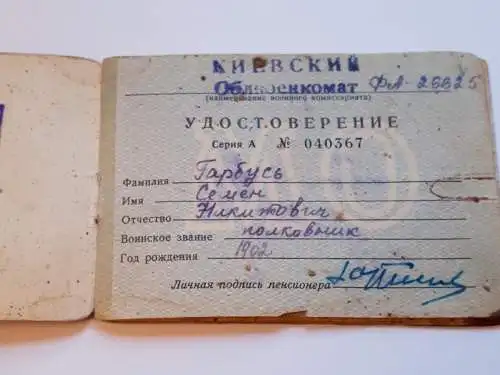 КИЕВСКИЙ
Облвоенкомат ФА-26625
(наименование военного комиссариата)
УДОСТОВЕРЕНИЕ
Серия А № 040367
Фамилия Гарбусь
Имя Семен
Отчество Никитович
Воинское звание полковник
Год рождения 1902
Личная подпись пенсионера